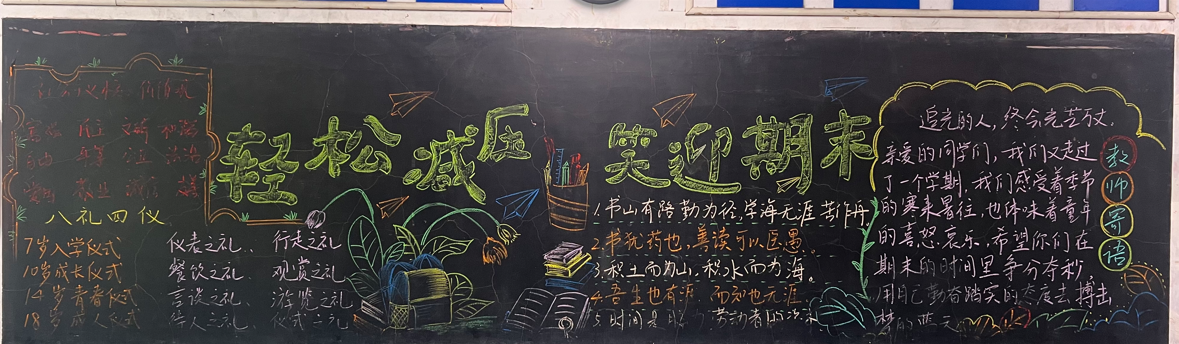 社会主义核心价值观
富强 民主 文明 和谐
自由 平等 公正 法治
爱国 敬业 诚信 友善
八礼四仪
7岁入学仪式
10岁成长仪式
14岁青春仪式
18岁成人仪式
仪表之礼、行走之礼
餐饮之礼、观赏之礼
言谈之礼、游览之礼
待人之礼、仪式之礼
轻松减压 笑迎期末
1.书山有路勤为径,学海无涯苦作舟
2.书犹药也,善读可以医愚。
3.积土而为山,积水而为海。
4.吾生也有涯,而知也无涯
5.时间是
劳动者
追光的人,终会光芒万丈.
亲爱的同学们,我们又走过
了一个学期,我们感受着季节
的寒来暑往,也体味着童年
的喜怒哀乐.希望你们在
期末的时间里争分夺秒,
用自己勤奋踏实的态度去搏击
梦的蓝天
教师寄语